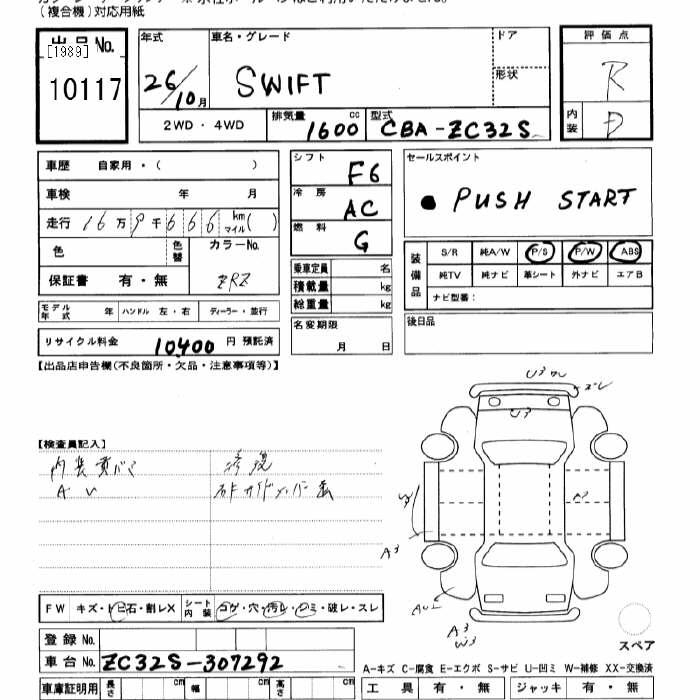 (複合機)対応用紙
出品No.
[1989]
10117
年式
26/10月
車名・グレード
SWIFT
ドア
形状
2WD・4WD
排気量 1600 cc
型式 CBA-ZC32S
評価点
R
内装 D
車歴 自家用・( )
車検 年 月
走行 16万9千666 km マイル( )
色
色替
カラーNo.
ZRZ
保証書 有・無
モデル年式 年 ハンドル 左・右 ディーラー・並行
リサイクル料金 10400円 預託済
シフト F6
冷房 AC
燃料 G
乗車定員 名
積載量 kg
総重量 kg
名変期限
月 日
セールスポイント
● PUSH START
装備品
S/R 純A/W P/S P/W ABS
純TV 純ナビ 革シート 外ナビ エアB
ナビ型番:
後日品
【出品店申告欄(不良箇所・欠品・注意事項等)】
【検査員記入】
内装
A U
U3
U3
A3
A3
W3
FW キズ・トビ石・割レX
シート内装 コゲ・穴・汚レ・シミ・破レ・スレ
スペア
登録No.
車台No. ZC32S-307292
A-キズ C-腐食 E-エクボ S-サビ U-凹ミ W-補修 XX-交換済
車庫証明用 長さ cm 幅 cm 高さ cm
工具 有・無 ジャッキ 有・無